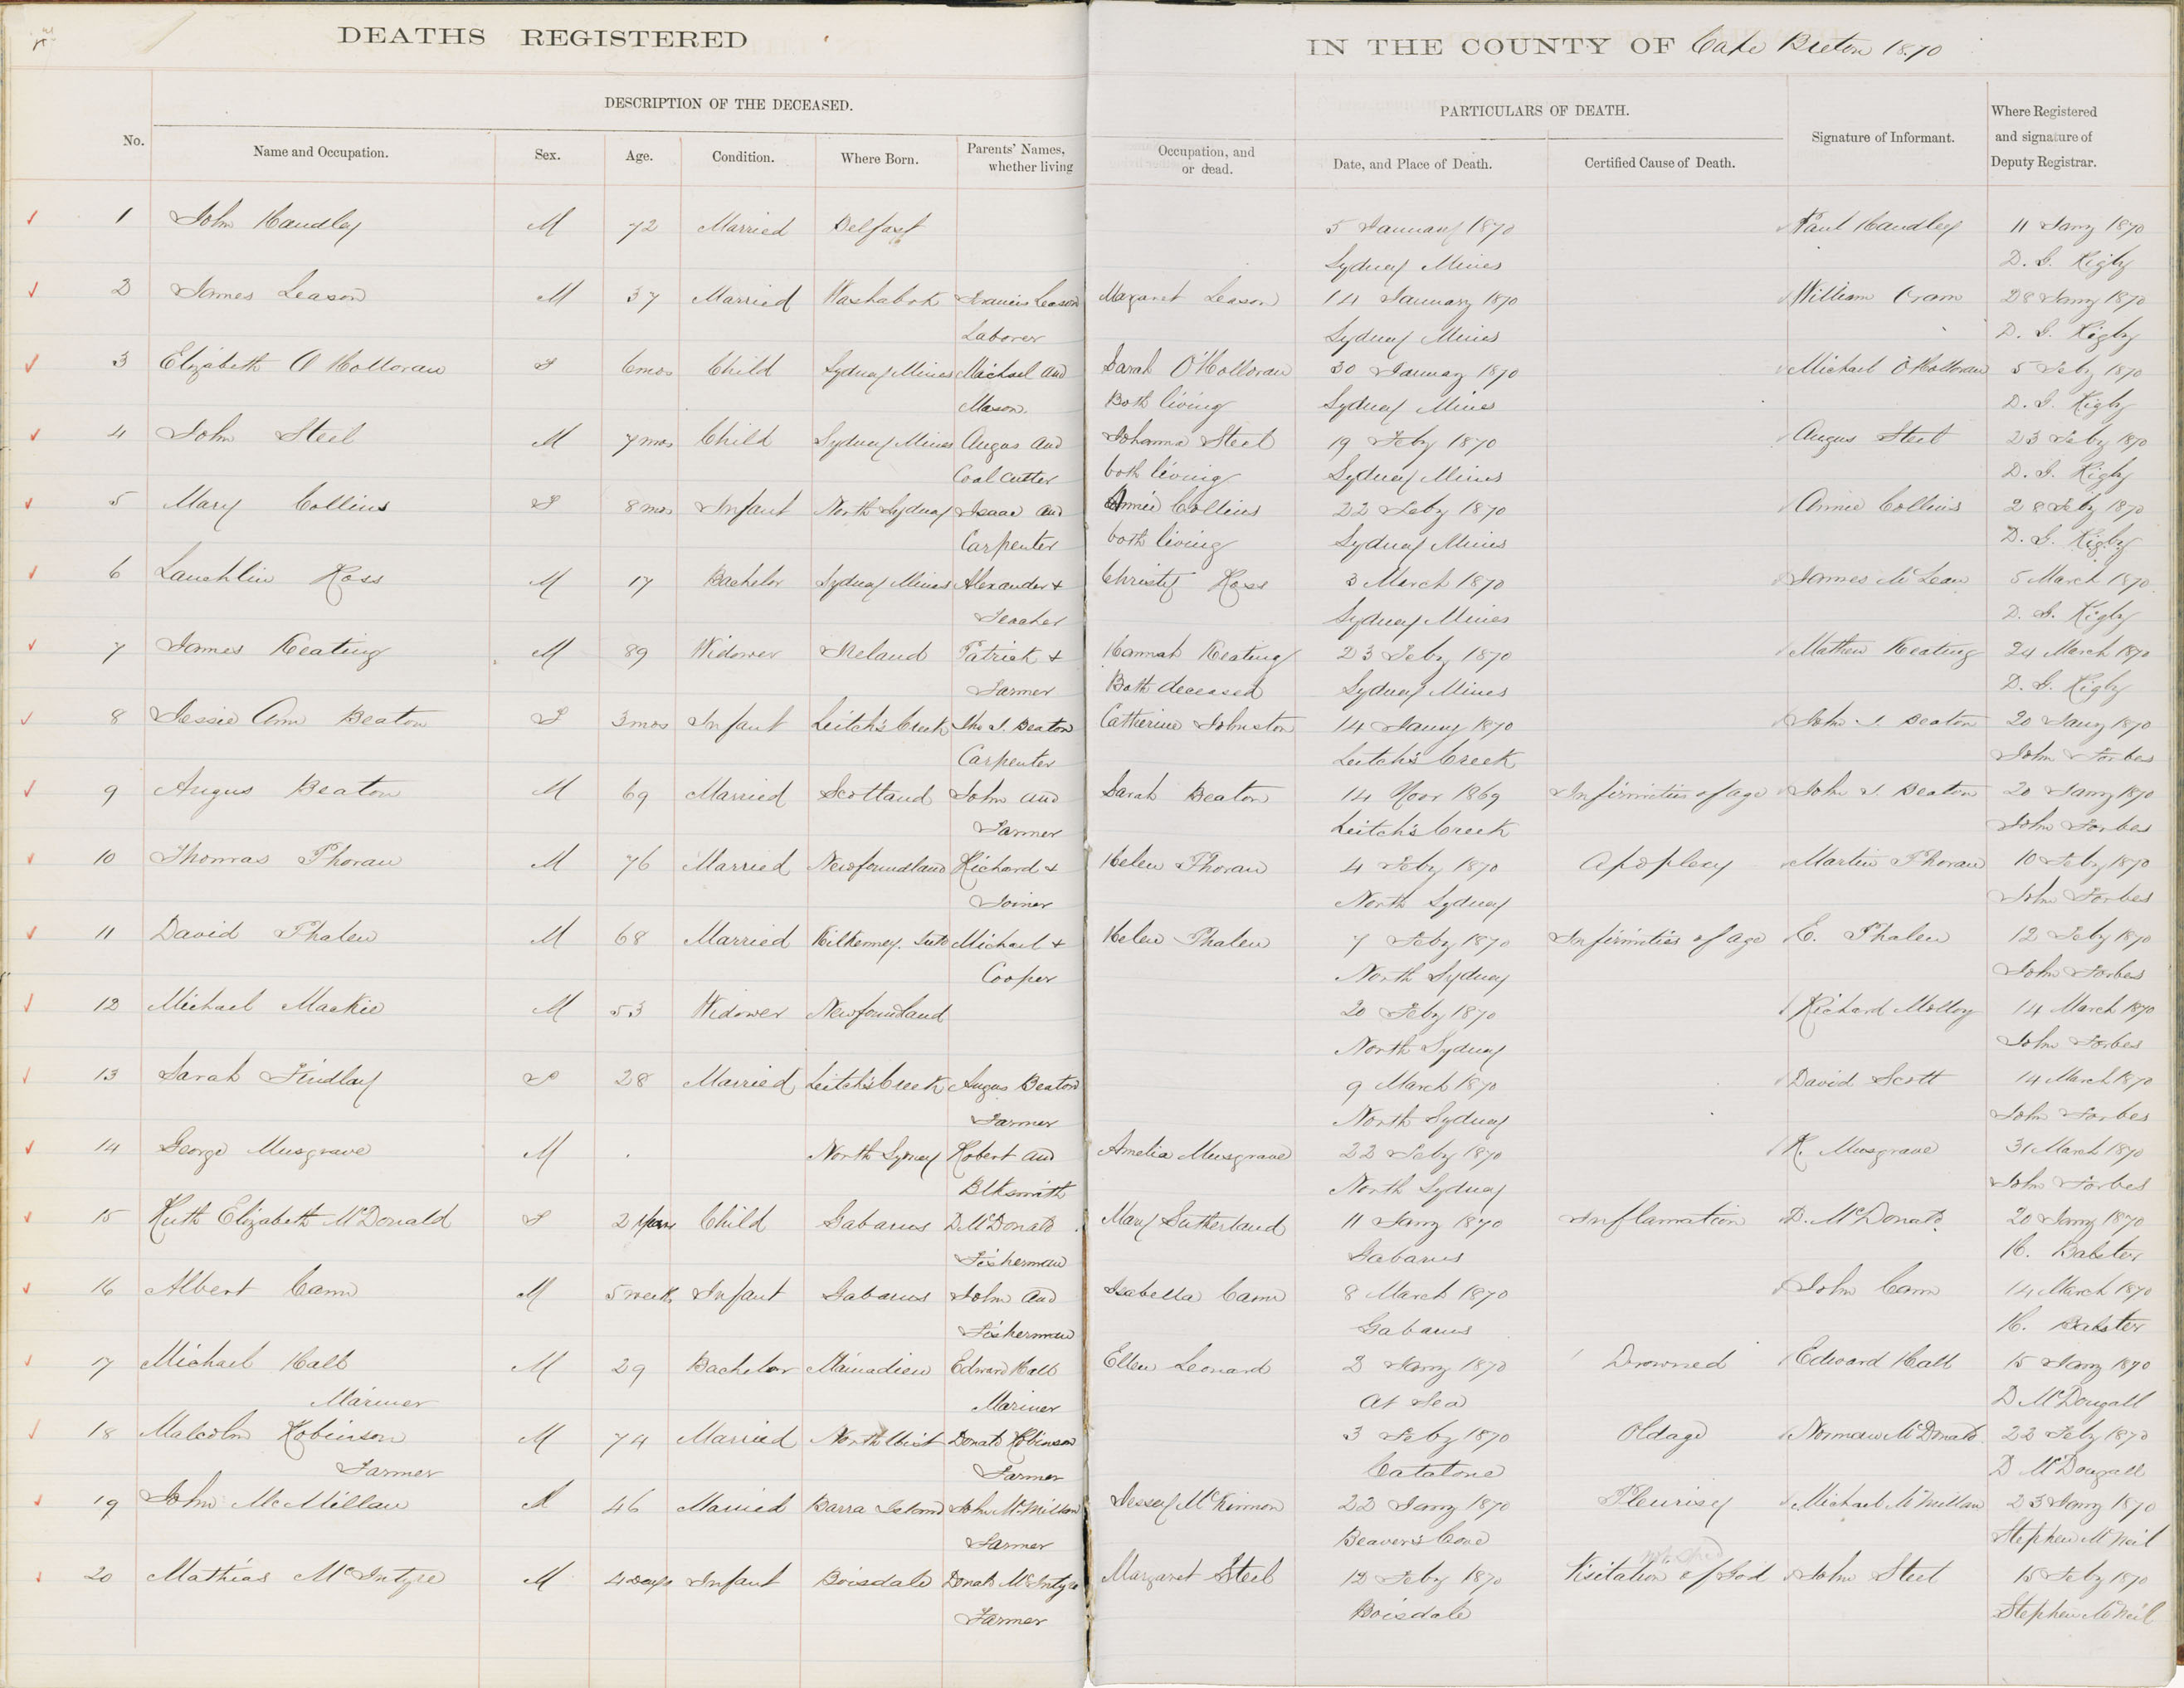 DEATHS REGISTERED IN THE COUNTY OF Cape Breton 1870
DESCRIPTION OF THE DECEASED. PARTICULARS OF DEATH.
No. Name and Occupation. Sex. Age. Condition. Where Born. Parents' Names, whether living Occupation, and or dead. Date, and Place of Death. Certified Cause of Death. Signature of Informant. Where Registered and signature of Deputy Registrar.
1 John Handley M 72 Married Belfast 5 January 1870 Paul Handley 11 Jany 1870
Sydney Mines D. G. Rigby
2 James Leason M 37 Married Washabok Francis Leason Margaret Leason 14 January 1870 William Oram 28 Jany 1870
Laborer Sydney Mines D. G. Rigby
3 Elizabeth O Holloran F 6 mos Child Sydney Mines Michael and Sarah O'Holloran 30 January 1870 Michael O'Holloran 5 Feby 1870
Mason. Both living Sydney Mines D. G. Rigby
4 John Steel M 7 mos Child Sydney Mines Angus and Johanna Steel 19 Feby 1870 Angus Steel 23 Feby 1870
Coal cutter both living Sydney Mines D. G. Rigby
5 Mary Collins F 8 mos Infant North Sydney Isaac and Annie Collins 22 Feby 1870 Annie Collins 28 Feby 1870
Carpenter both living Sydney Mines D. G. Rigby
6 Lauchlin Ross M 17 Bachelor Sydney Mines Alexander + Christy Ross 3 March 1870 James McLean 5 March 1870
Teacher Sydney Mines D. G. Rigby
7 James Keating M 89 Widower Ireland Patrick + Hannah Keating 23 Feby 1870 Mathew Keating 24 March 1870
Farmer Both deceased Sydney Mines D. G. Rigby
8 Jessie Ann Beaton F 3 mos Infant Leitch's Creek Jno J. Beaton Catherine Johnston 14 Jany 1870 John J. Beaton 20 Jany 1870
Carpenter Leitch's Creek John Forbes
9 Angus Beaton M 69 Married Scotland John and Sarah Beaton 14 Novr 1869 Infirmities of age John J. Beaton 20 Jany 1870
Farmer Leitch's Creek John Forbes
10 Thomas Phoran M 76 Married Newfoundland Richard + Helen Phoran 4 Feby 1870 Apoplexy Martin Phoran 10 Feby 1870
Joiner North Sydney John Forbes
11 David Phalen M 68 Married Kilkenney. Michael + Helen Phalen 7 Feby 1870 Infirmities of age E. Phalen 12 Feby 1870
Cooper North Sydney John Forbes
12 Michael Mackie M 53 Widower Newfoundland 20 Feby 1870 Richard Molloy 14 March 1870
North Sydney John Forbes
13 Sarah Findlay F 28 Married Leitch's Creek Angus Beaton 9 March 1870 David Scott 14 March 1870
Farmer North Sydney John Forbes
14 George Musgrave M North Syney Robert and Amelia Musgrave 22 Feby 1870 R. Musgrave 31 March 1870
Blksmith North Sydney John Forbes
15 Ruth Elizabeth McDonald F 2 years Child Gabarus D. McDonald Mary Sutherland 11 Jany 1870 Inflamation D. McDonald 20 Jany 1870
Fisherman Gabarus H. Bakster
16 Albert Cann M 5 weeks Infant Gabarus John and Isabella Cann 8 March 1870 John Cann 14 March 1870
Fisherman Gabarus H. Bakster
17 Michael Hall M 29 Bachelor Mainadieu Edward Hall Ellen Leonard 2 Jany 1870 Drowned Edward Hall 15 Jany 1870
Mariner Mariner At Sea D McDougall
18 Malcolm Robinson M 74 Married North Uist Donald Robinson 3 Feby 1870 Old age Norman McDonald 22 Feby 1870
Farmer Farmer Catalone D McDougall
19 John McMillan M 46 Married Barra Island John McMillan Jessey McKinnon 22 Jany 1870 Pleurisy Michael McMillan 23 Jany 1870
Farmer Beaver's Cove Stephen McNeil
20 Mathias McIntyre M 4 days Infant Boisdale Donald McIntyre Margaret Steel 12 Feby 1870 Visitation of God John Steel 15 Feby 1870
Farmer Boisdale Stephen McNeil